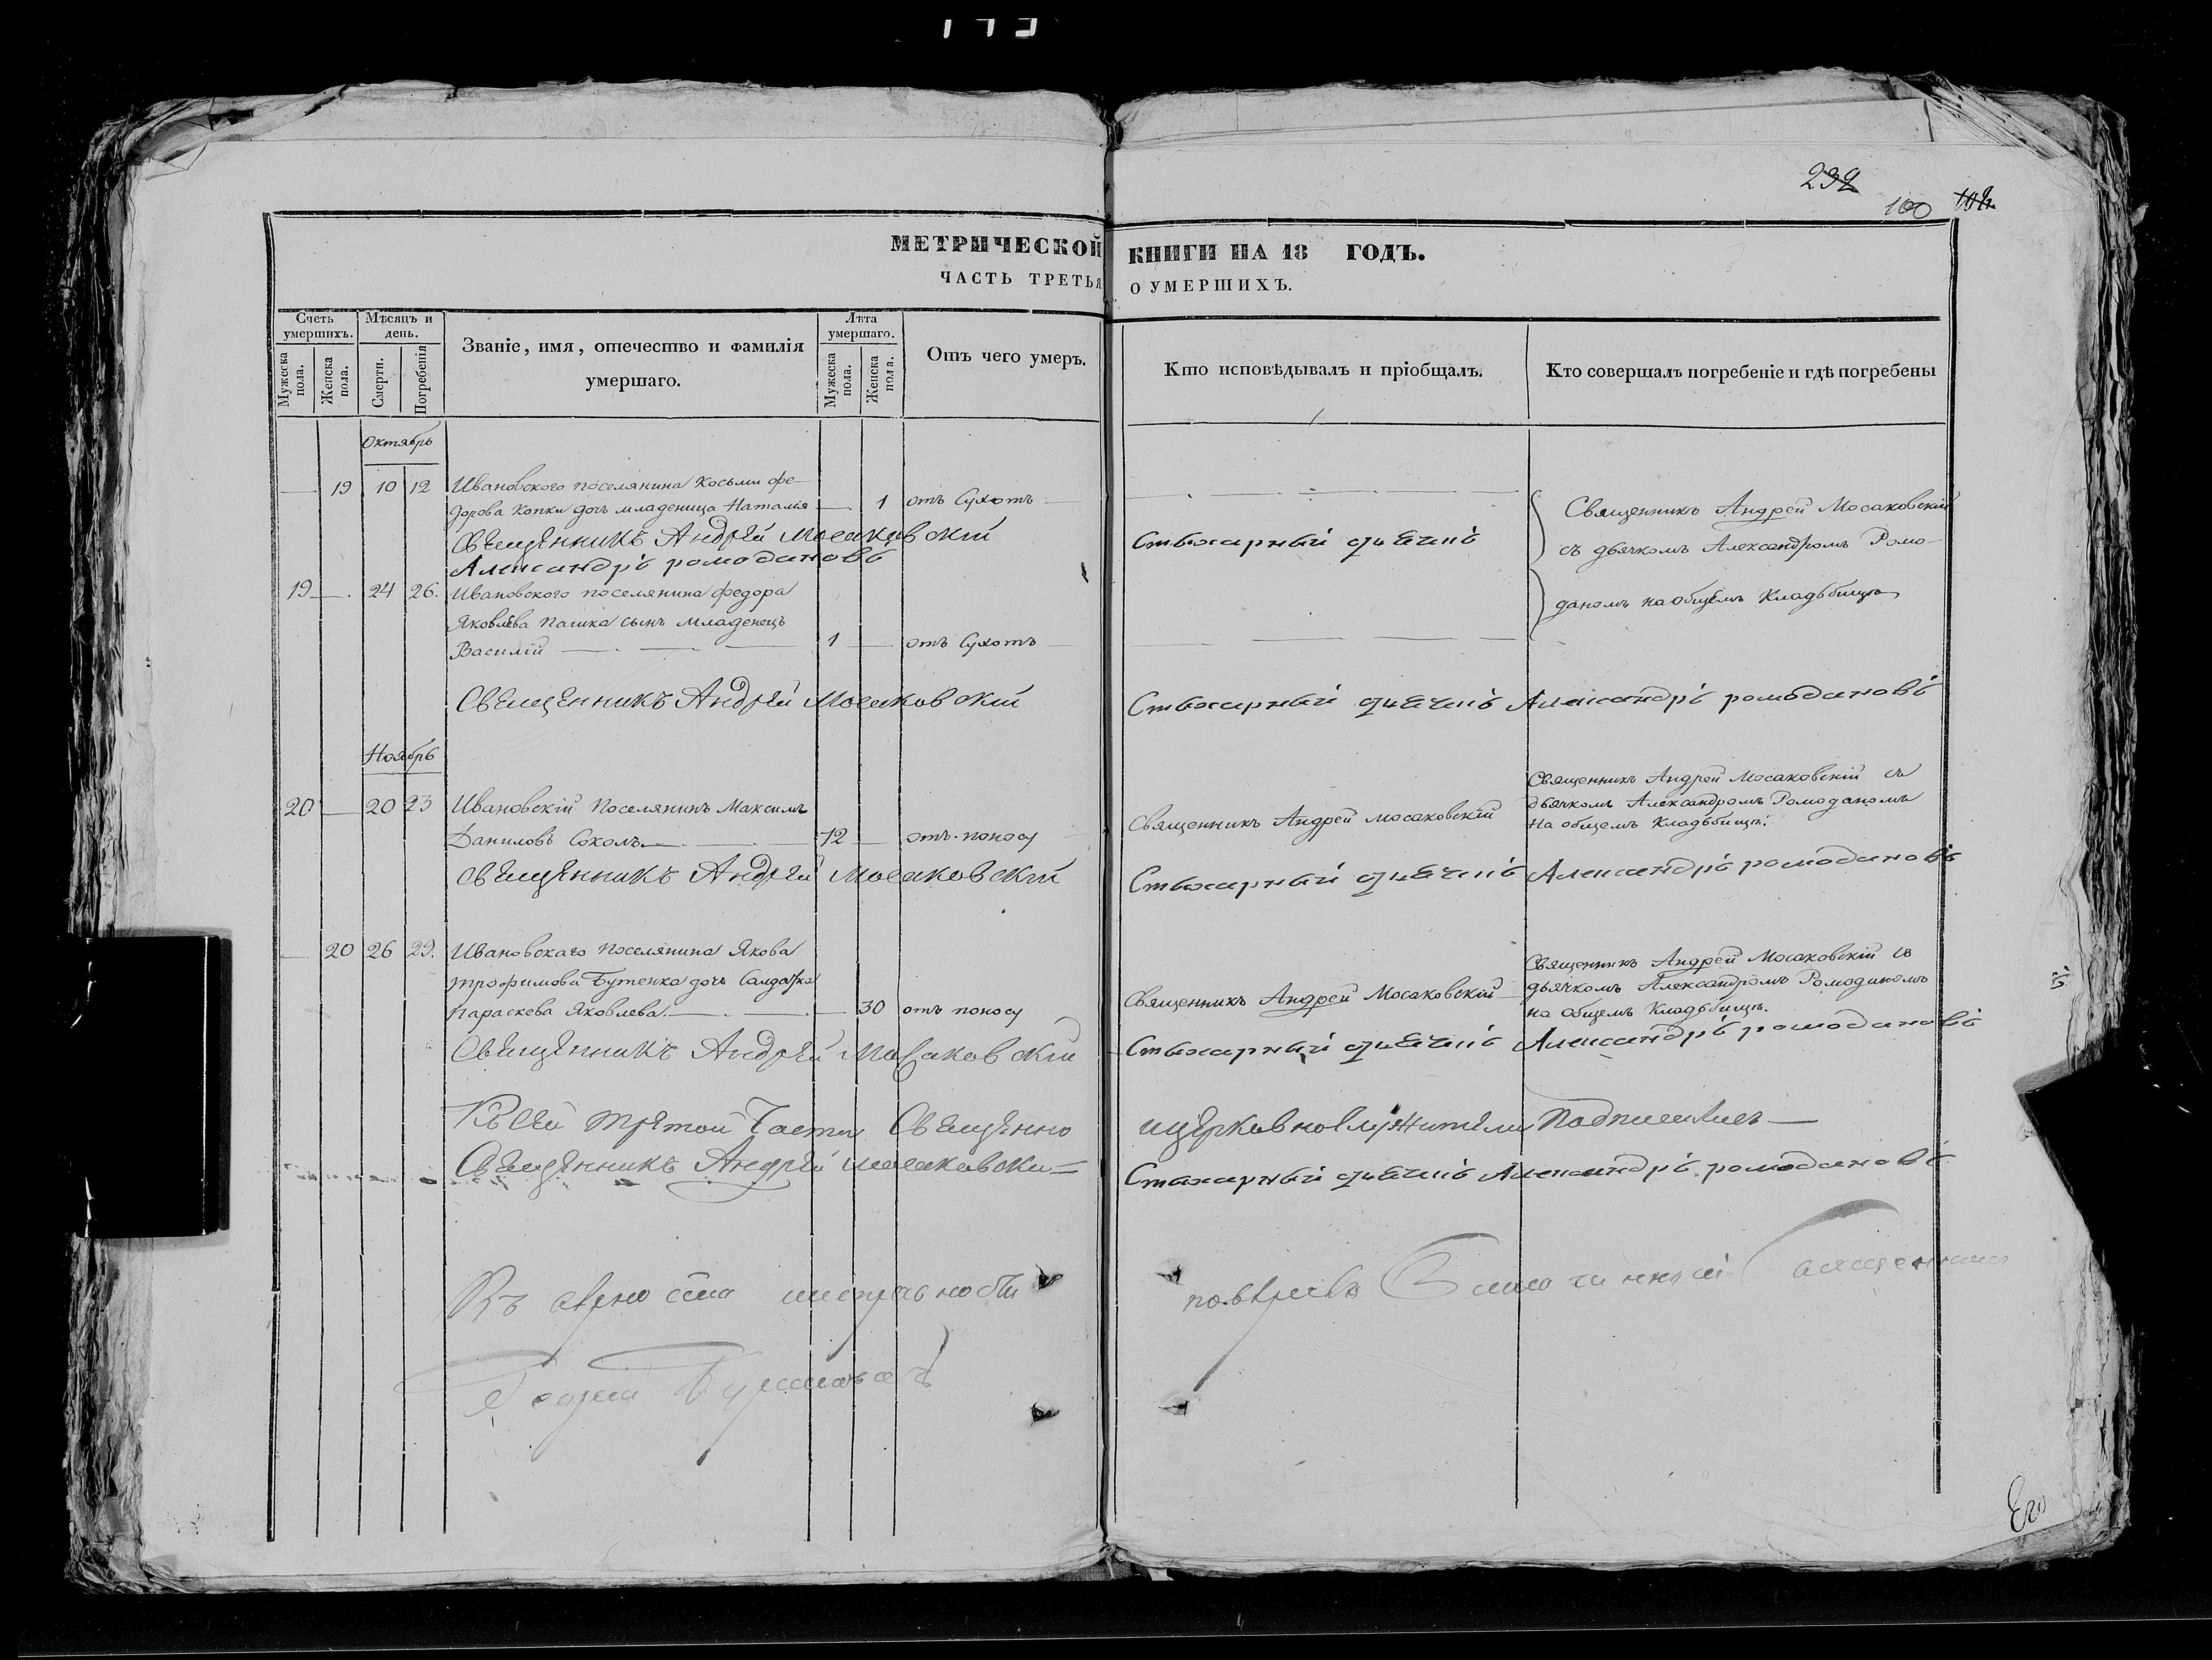 232
100 102
МЕТРИЧЕСКОЙ КНИГИ НА 18 ГОДЪ.
ЧАСТЬ ТРЕТЬЯ О УМЕРШИХЪ.
Счетъ умершихъ.
Мужеска пола.
Женска пола.
Мѣсяцъ и день.
Смерти.
Погребенія
Званіе, имя, отечество и фамилія
умершаго.
Лѣта умершаго.
Мужеска пола.
Женска пола.
Отъ чего умеръ.
Кто исповѣдывалъ и пріобщалъ.
Кто совершалъ погребеніе и гдѣ погребены
Октябрь
19 10 12 Ивановского поселянина Косьми фе-
дорова Копки дочь младеница Наталия 1 отъ Сухотъ
Священникъ Андрей Мосаковскій
съ дьячкомъ Александромъ Ромо-
даномъ на общемъ Кладьбищѣ
Священникъ Андрей Мосаковскій Стихарный дьячикъ
Александръ ромодановъ
19 24 26. Ивановского поселянина федора
Яковлева Пашка сынъ младенецъ
Василій 1 отъ Сухотъ
Священникъ Андрей Мосаковскій Стихарный дьячикъ Александръ ромодановъ
Ноябрь
20 20 23 Ивановскій Поселянинъ Максимъ
Даниловъ Соколъ 72 отъ поносу
Священникъ Андрей Мосаковскій
Священникъ Андрей Мосаковскій съ
дьячкомъ Александромъ Ромоданомъ
на общемъ Кладьбищѣ.
Священникъ Андрей Мосаковскій Стихарный дьячикъ Александръ ромодановъ
20 26 29. Ивановскаго Поселянина Якова
трофимова Бутенка дочь Салдатка
Параскева Яковлева 30 отъ поносу
Священникъ Андрей Мосаковскій
Священникъ Андрей Мосаковскій съ
дьячкомъ Александромъ Ромоданомъ
на Общемъ Кладьбищѣ.
Священникъ Андрей Мосаковскій Стихарный дьячикъ Александръ ромодановъ
Къ сей третой Части Священно ицерковнослужители Подписались
Священникъ Андрей мосаковскій Стихарный дьячикъ Александръ ромодановъ
Благочинный Священникъ
Его